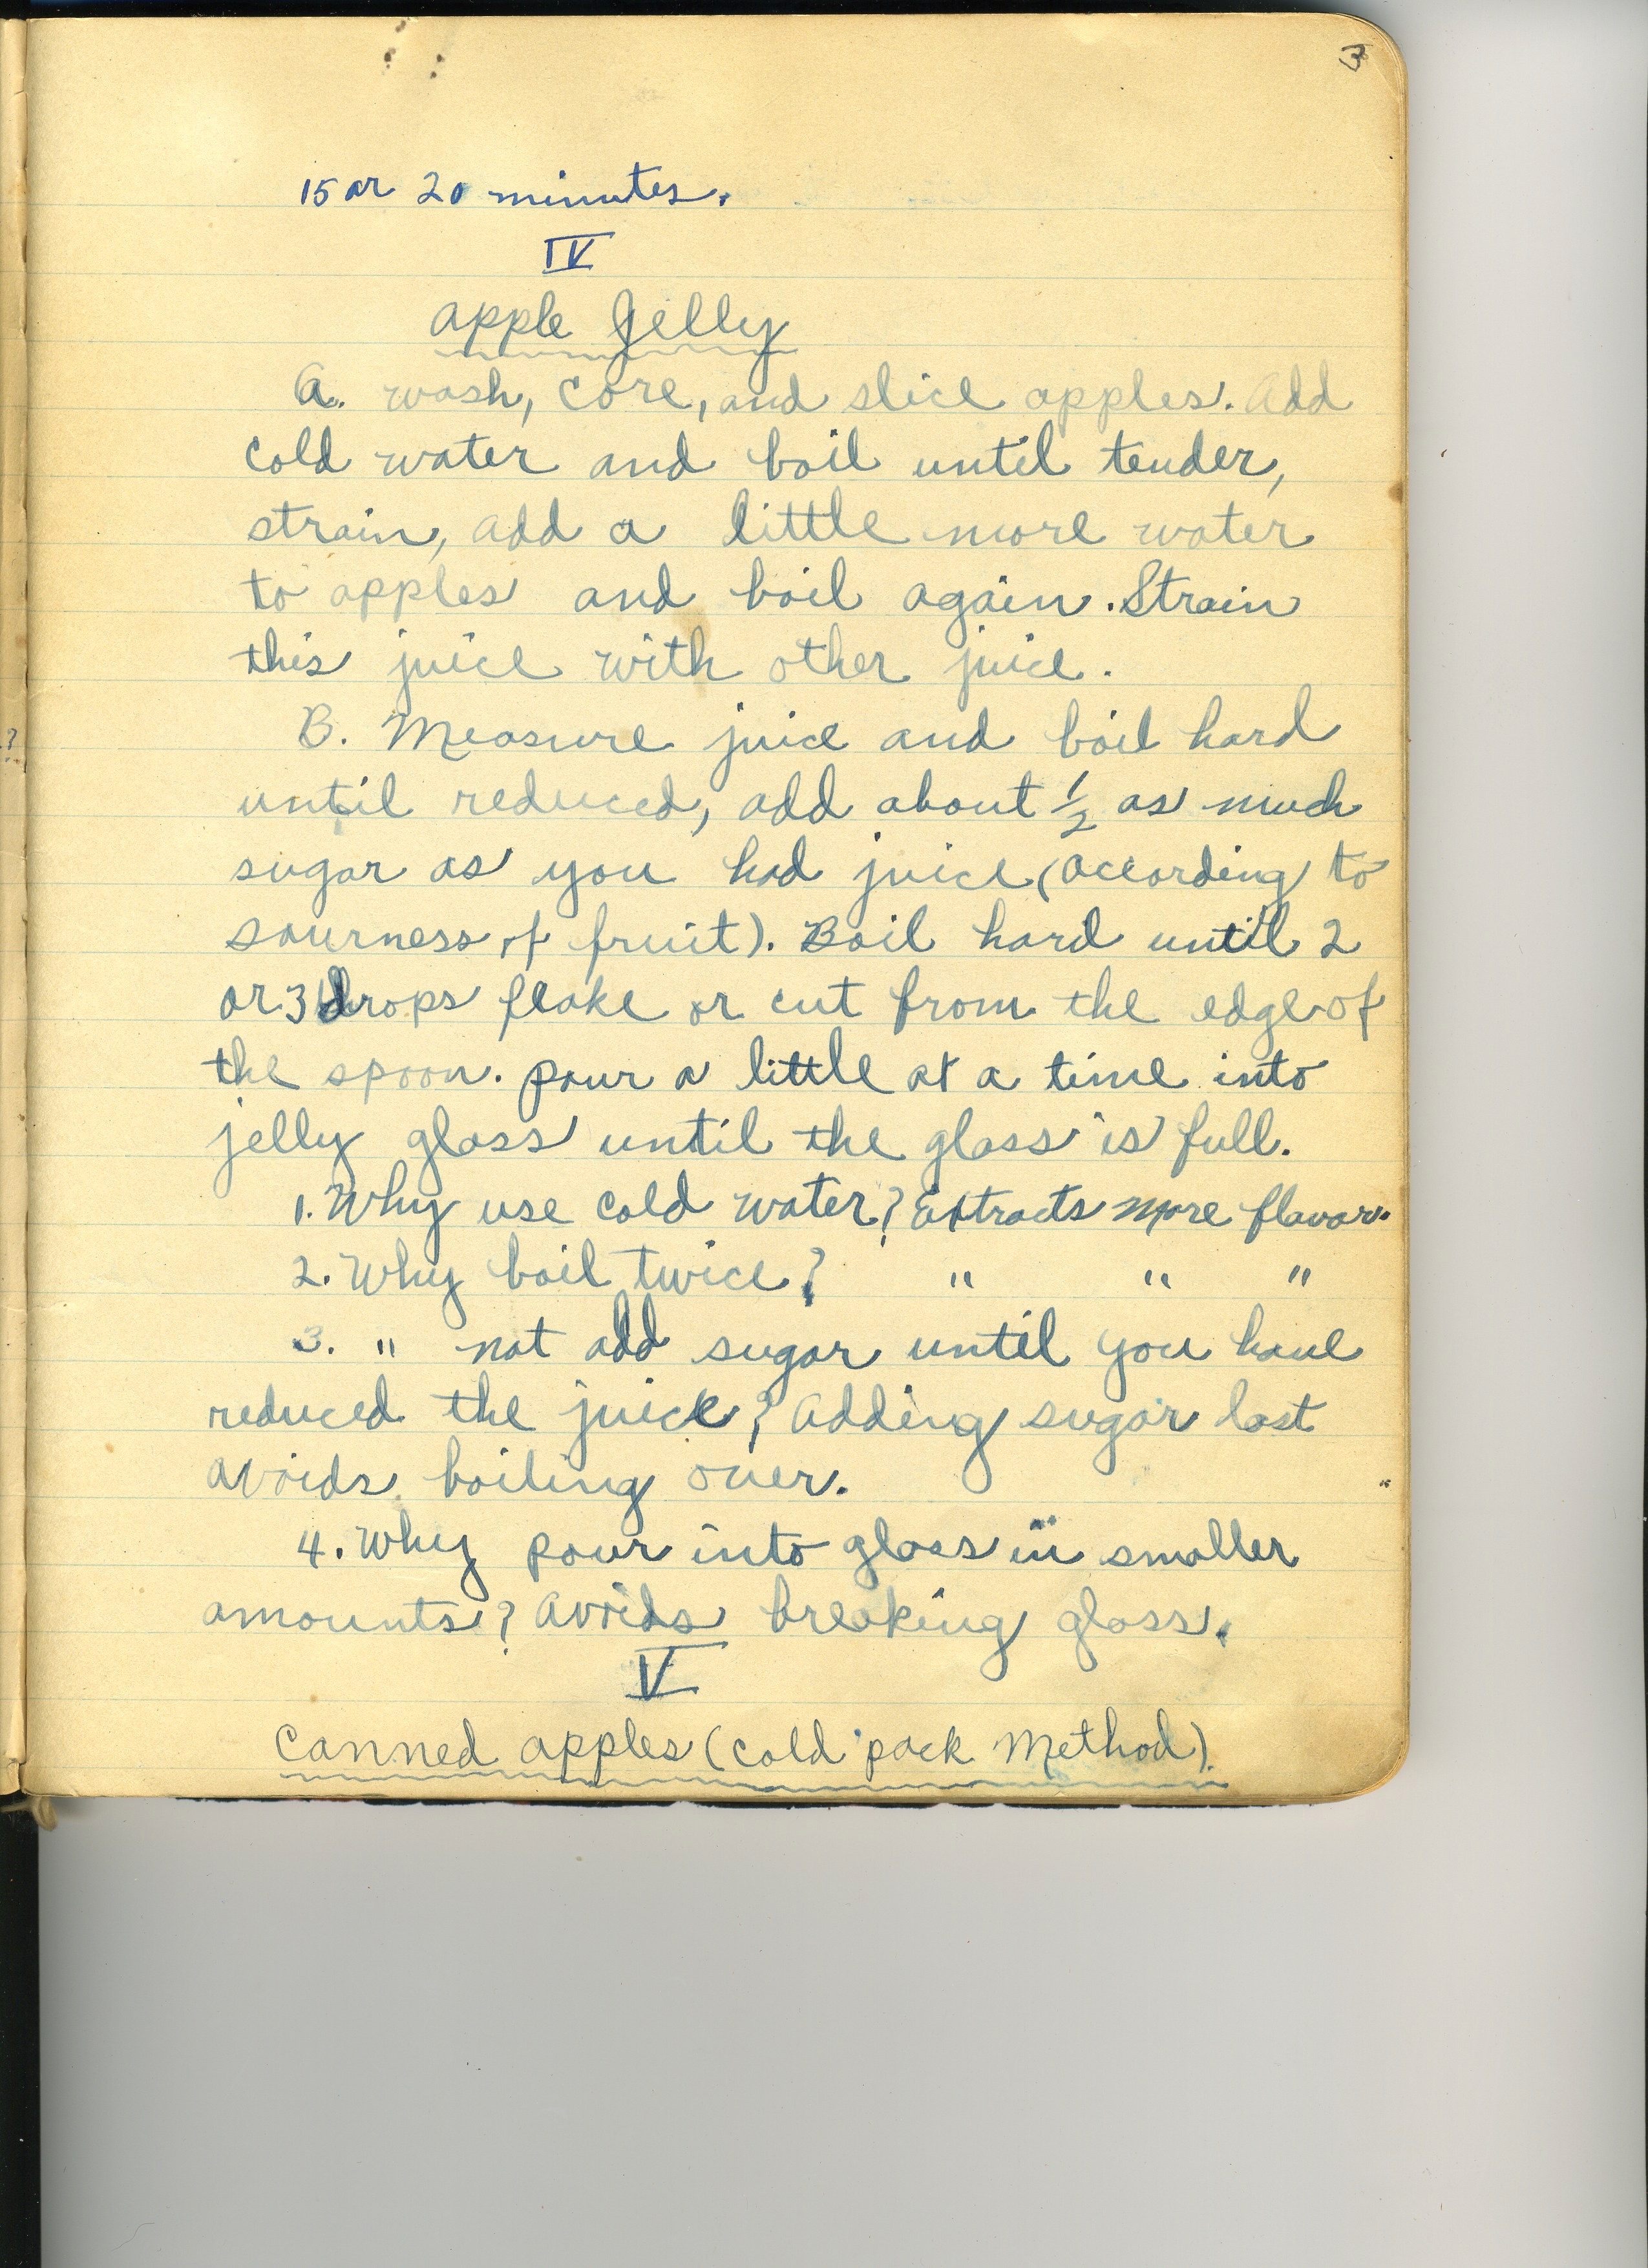 3
15 or 20 minutes.
IV
Apple Jelly
A. wash, core, and slice apples. Add
cold water and boil until tender,
strain, add a little more water
to apples and boil again. Strain
this juice with other juice.
B. Measure juice and boil hard
until reduced, add about 1/2 as much
sugar as you had juice (according to
sourness of fruit). Boil hard until 2
or 3 drops flake or cut from the edge of
the spoon. pour a little at a time into
jelly glass until the glass is full.
1. Why use cold water? Extracts more flavor.
2. Why boil twice? " " "
3. " not add sugar until you have
reduced the juice? Adding sugar last
avoids boiling over.
4. Why pour into glass in smaller
amounts? Avoids breaking glass.
V
Canned apples (cold pack Method).